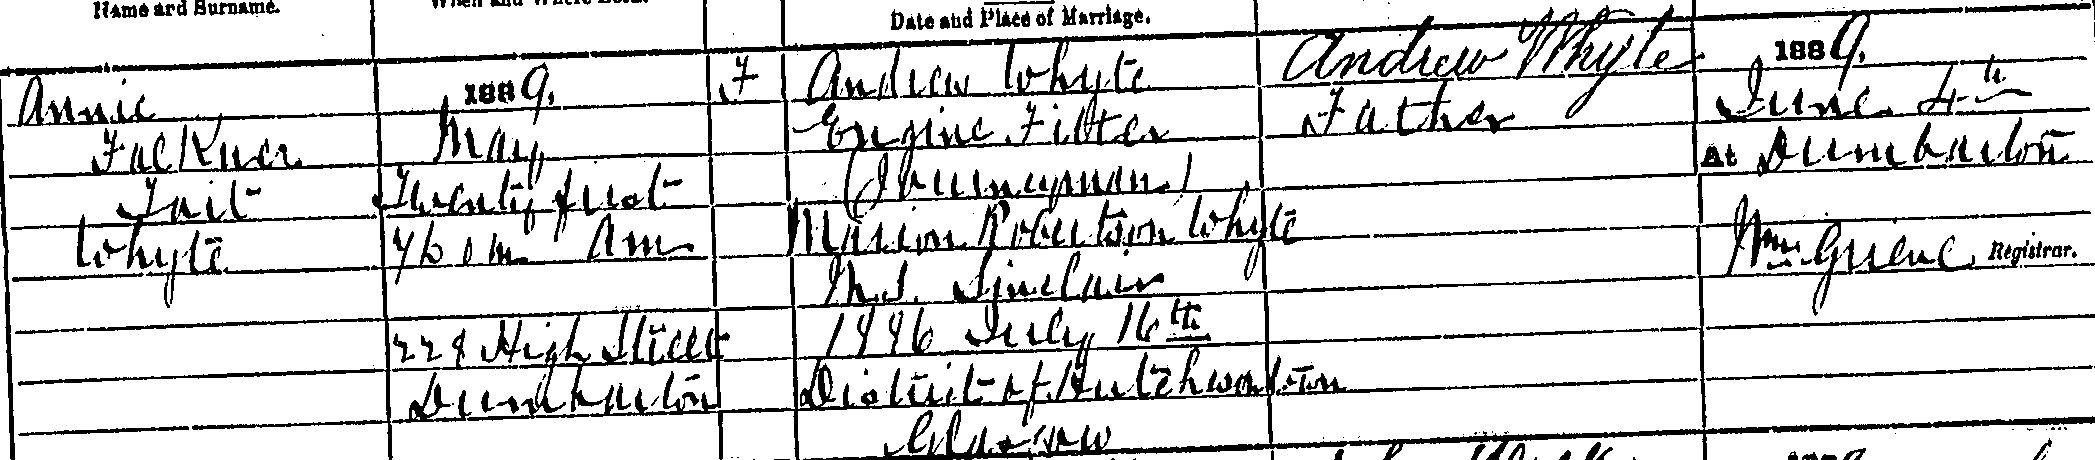 Name and Surname.
When and Where Born.
Date and Place of Marriage.
Annie
Falkner
Tait
Whyte
1889.
May
Twenty first
7h 0m AM
228 High Street
Dumbarton
F
Andrew Whyte
Engine Fitter
(Journeyman)
Marion Robertson Whyte
M.S. Sinclair
1886 July 16th
District of Hutchesontown
Glasgow
Andrew Whyte
Father
1889.
June 4th
At Dumbarton
Wm Grieve Registrar.